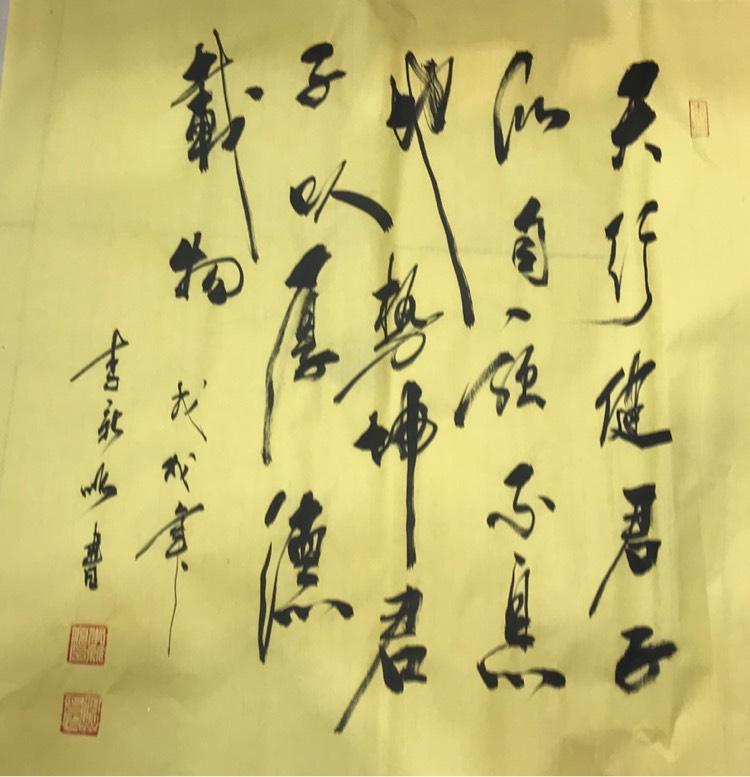 天行健君子
以自强不息
地势坤君
子以厚德
載物 戊戌年
李新 書